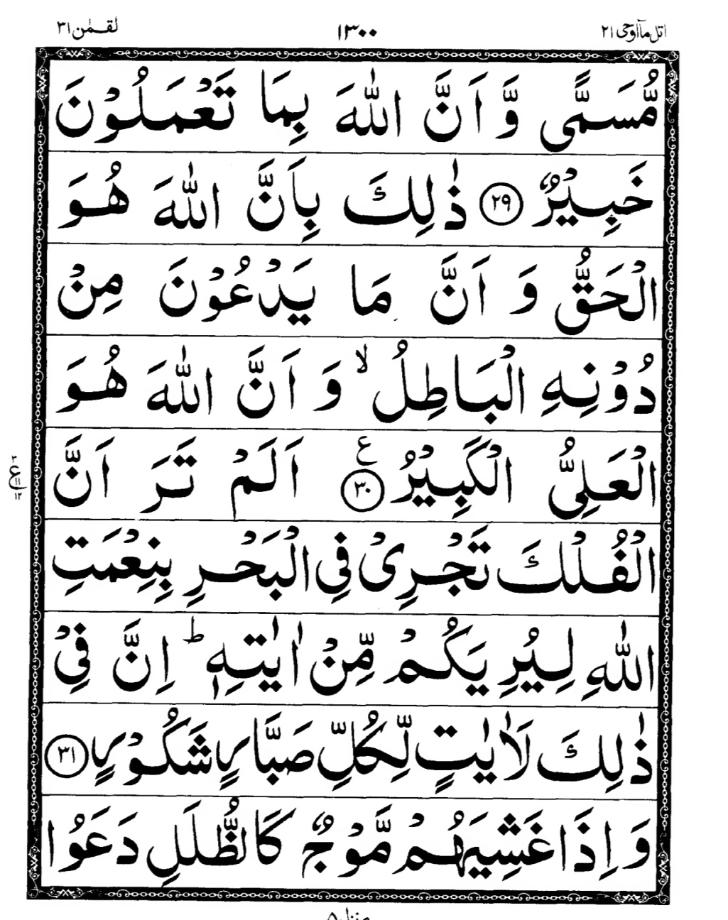 اتل مآاوحی ۲۱ ۱۳۰۰ لقمٰن ۳۱
مُّسَمًّى وَّ اَنَّ اللّٰهَ بِمَا تَعْمَلُوْنَ
خَبِيْرٌ ۲۹ ذٰلِكَ بِاَنَّ اللّٰهَ هُوَ
الْحَقُّ وَ اَنَّ مَا يَدْعُوْنَ مِنْ
دُوْنِهِ الْبَاطِلُ ۙ وَ اَنَّ اللّٰهَ هُوَ
الْعَلِىُّ الْكَبِيْرُ ۳۰ ع اَلَمْ تَرَ اَنَّ
الْفُلْكَ تَجْرِىْ فِى الْبَحْرِ بِنِعْمَتِ
اللّٰهِ لِيُرِيَكُمْ مِّنْ اٰيٰتِهٖ ؕ اِنَّ فِىْ
ذٰلِكَ لَاٰيٰتٍ لِّكُلِّ صَبَّارٍ شَكُوْرٍ ۳۱
وَ اِذَا غَشِيَهُمْ مَّوْجٌ كَالظُّلَلِ دَعَوُا